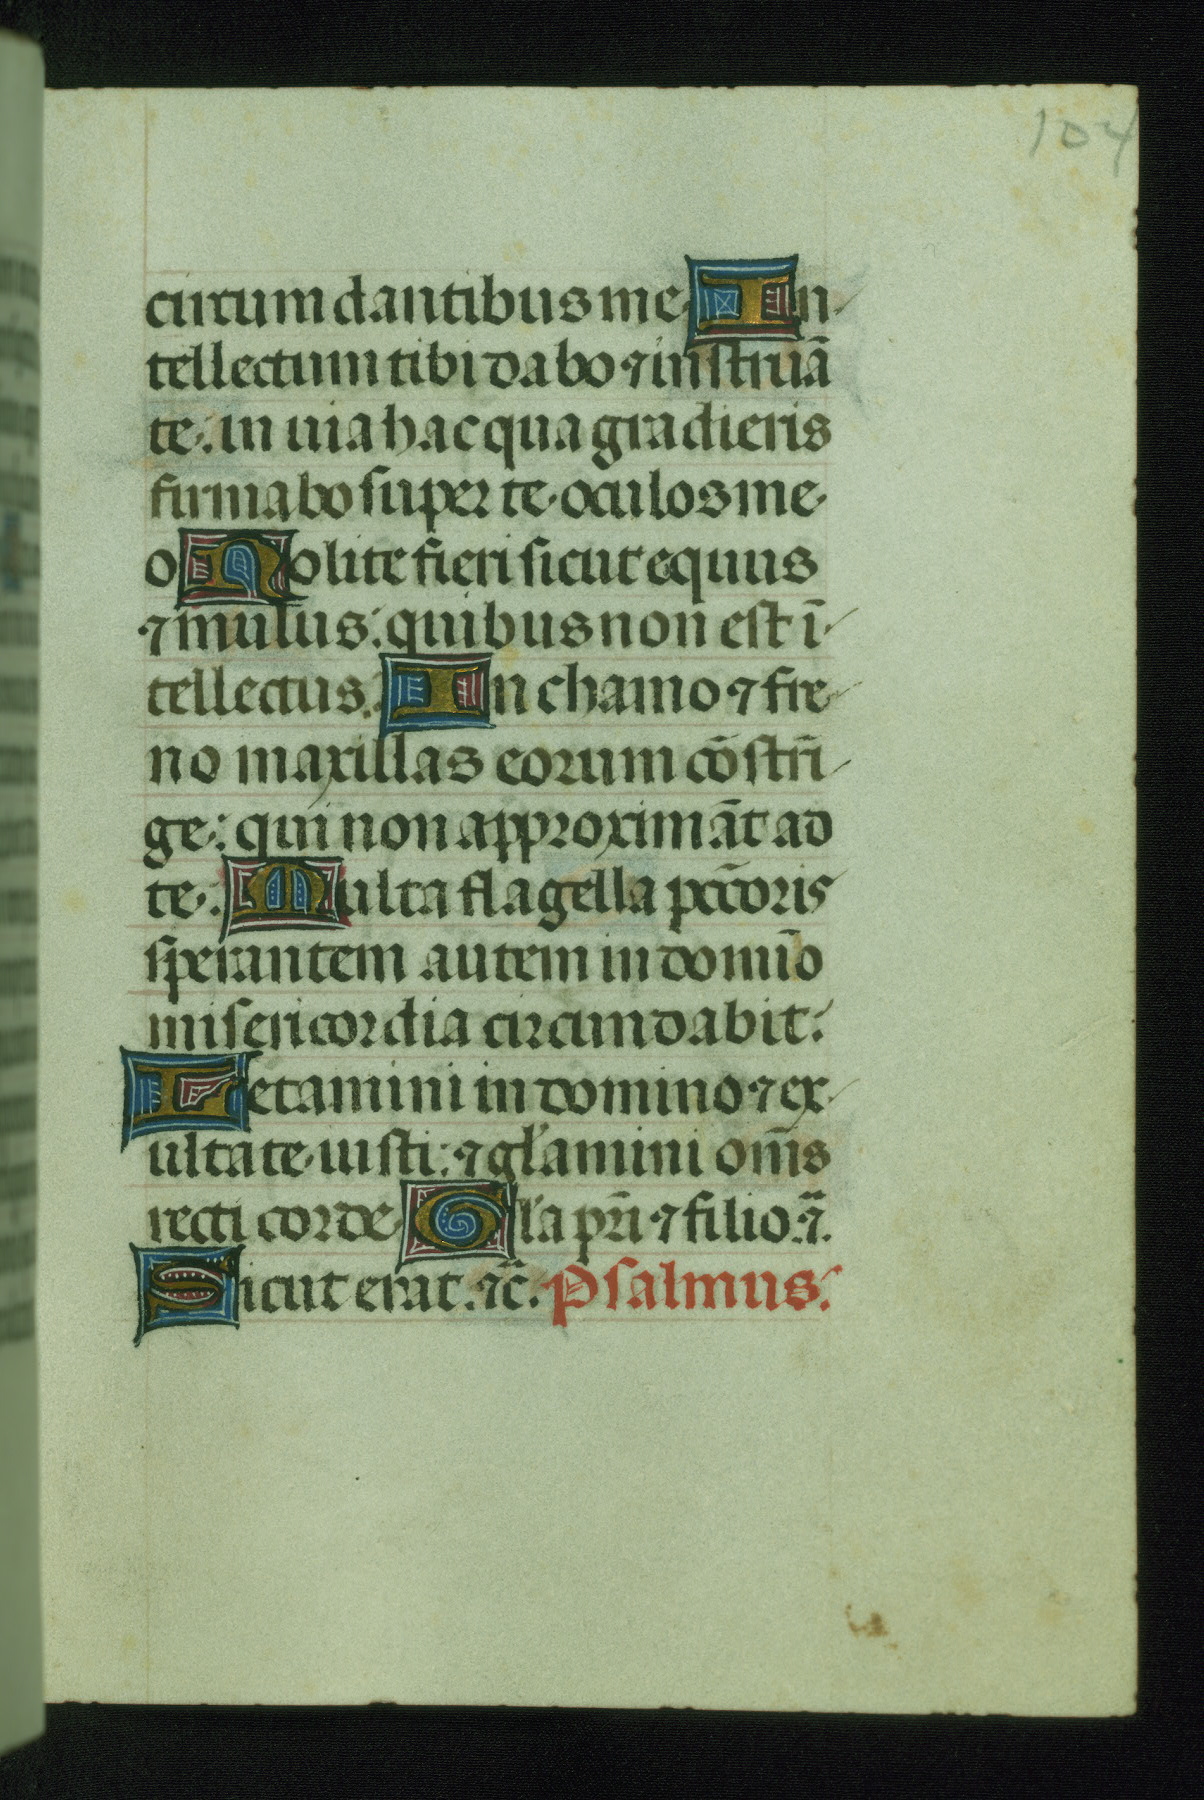 104
circumdantibus me. In
tellectum tibi dabo ⁊ instruā
te: in uia hac qua gradieris
firmabo super te oculos me
os Nolite fieri sicut equus
⁊ mulus: quibus non est ī
tellectus. In chamo ⁊ fre
no maxillas eorum cōstrī
ge: qui non approximāt ad
te. Multa flagella pctōris
sperantem autem in domīo
misericordia circumdabit:
Letamini in domino ⁊ ex
ultate iusti: ⁊ głamini om̄s
recti corde Gła pr̄i ⁊ filio ⁊̄.
Sicut erat. ⁊c̄. Psalmus.